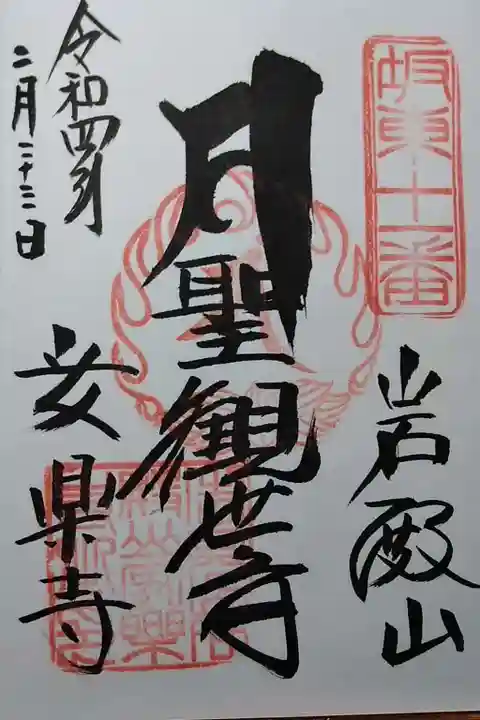 坂東十一番
岩殿山
聖観世音
安楽寺
令和四年
二月二十三日